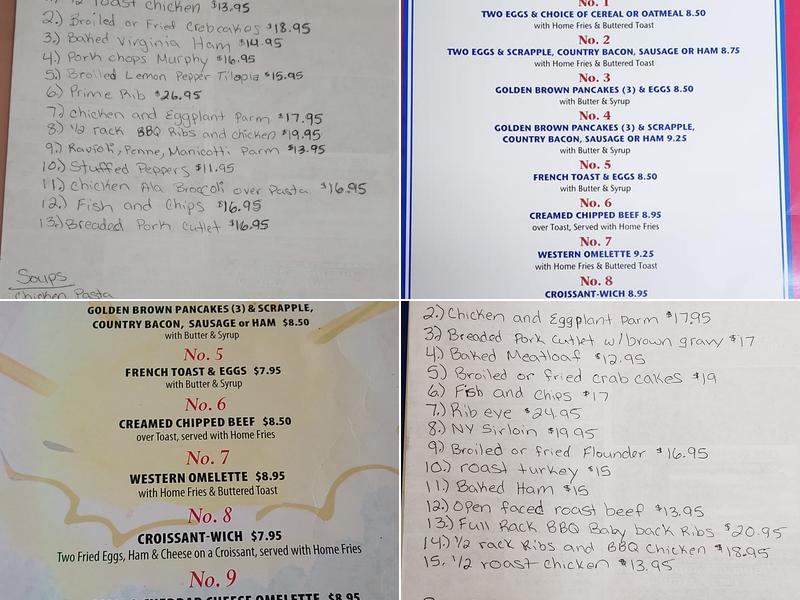 1/2 roast chicken $13.95
2.) Broiled or Fried Crabcakes $18.95
3.) Baked Virginia Ham $14.95
4.) Pork chops Murphy $16.95
5.) Broiled Lemon Pepper Tilapia $15.95
6.) Prime Rib $26.95
7.) chicken and Eggplant Parm $17.95
8.) 1/2 rack BBQ Ribs and chicken $19.95
9.) Ravioli, Penne, Manicotti Parm $13.95
10.) Stuffed Peppers $11.95
11.) chicken Ala Broccoli over Pasta $16.95
12.) Fish and Chips $16.95
13.) Breaded Pork Cutlet $16.95
Soups
Chicken Pasta
No. 1
TWO EGGS & CHOICE OF CEREAL OR OATMEAL 8.50
with Home Fries & Buttered Toast
No. 2
TWO EGGS & SCRAPPLE, COUNTRY BACON, SAUSAGE OR HAM 8.75
with Home Fries & Buttered Toast
No. 3
GOLDEN BROWN PANCAKES (3) & EGGS 8.50
with Butter & Syrup
No. 4
GOLDEN BROWN PANCAKES (3) & SCRAPPLE,
COUNTRY BACON, SAUSAGE OR HAM 9.25
with Butter & Syrup
No. 5
FRENCH TOAST & EGGS 8.50
with Butter & Syrup
No. 6
CREAMED CHIPPED BEEF 8.95
over Toast, Served with Home Fries
No. 7
WESTERN OMELETTE 9.25
with Home Fries & Buttered Toast
No. 8
CROISSANT-WICH 8.95
GOLDEN BROWN PANCAKES (3) & SCRAPPLE,
COUNTRY BACON, SAUSAGE or HAM $8.50
with Butter & Syrup
No. 5
FRENCH TOAST & EGGS $7.95
with Butter & Syrup
No. 6
CREAMED CHIPPED BEEF $8.50
over Toast, served with Home Fries
No. 7
WESTERN OMELETTE $8.95
with Home Fries & Buttered Toast
No. 8
CROISSANT-WICH $7.95
Two Fried Eggs, Ham & Cheese on a Croissant, served with Home Fries
No. 9
CHEDDAR CHEESE OMELETTE $8.95
2.) Chicken and Eggplant Parm $17.95
3.) Breaded Pork Cutlet w/brown gravy $17
4.) Baked Meatloaf $12.95
5.) Broiled or fried crab cakes $19
6.) Fish and Chips $17
7.) Rib eye $24.95
8.) NY Sirloin $19.95
9.) Broiled or fried Flounder $16.95
10.) roast turkey $15
11.) Baked Ham $15
12.) Open faced roast beef $13.95
13.) Full Rack BBQ Baby back Ribs $20.95
14.) 1/2 rack Ribs and BBQ Chicken $18.95
15. 1/2 roast chicken $13.95